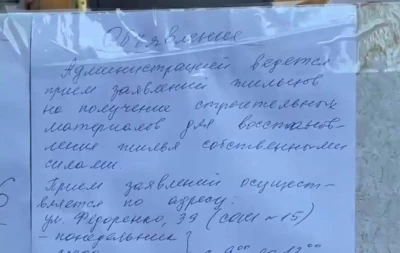 Объявление
Администрацией ведется
прием заявлений жильцов
на получение строительных
материалов для восстанов-
ления жилья собственными
силами.
Прием заявлений осущест-
вляется по адресу:
ул. Федоренко, 39 (СОШ №15)
- понедельник